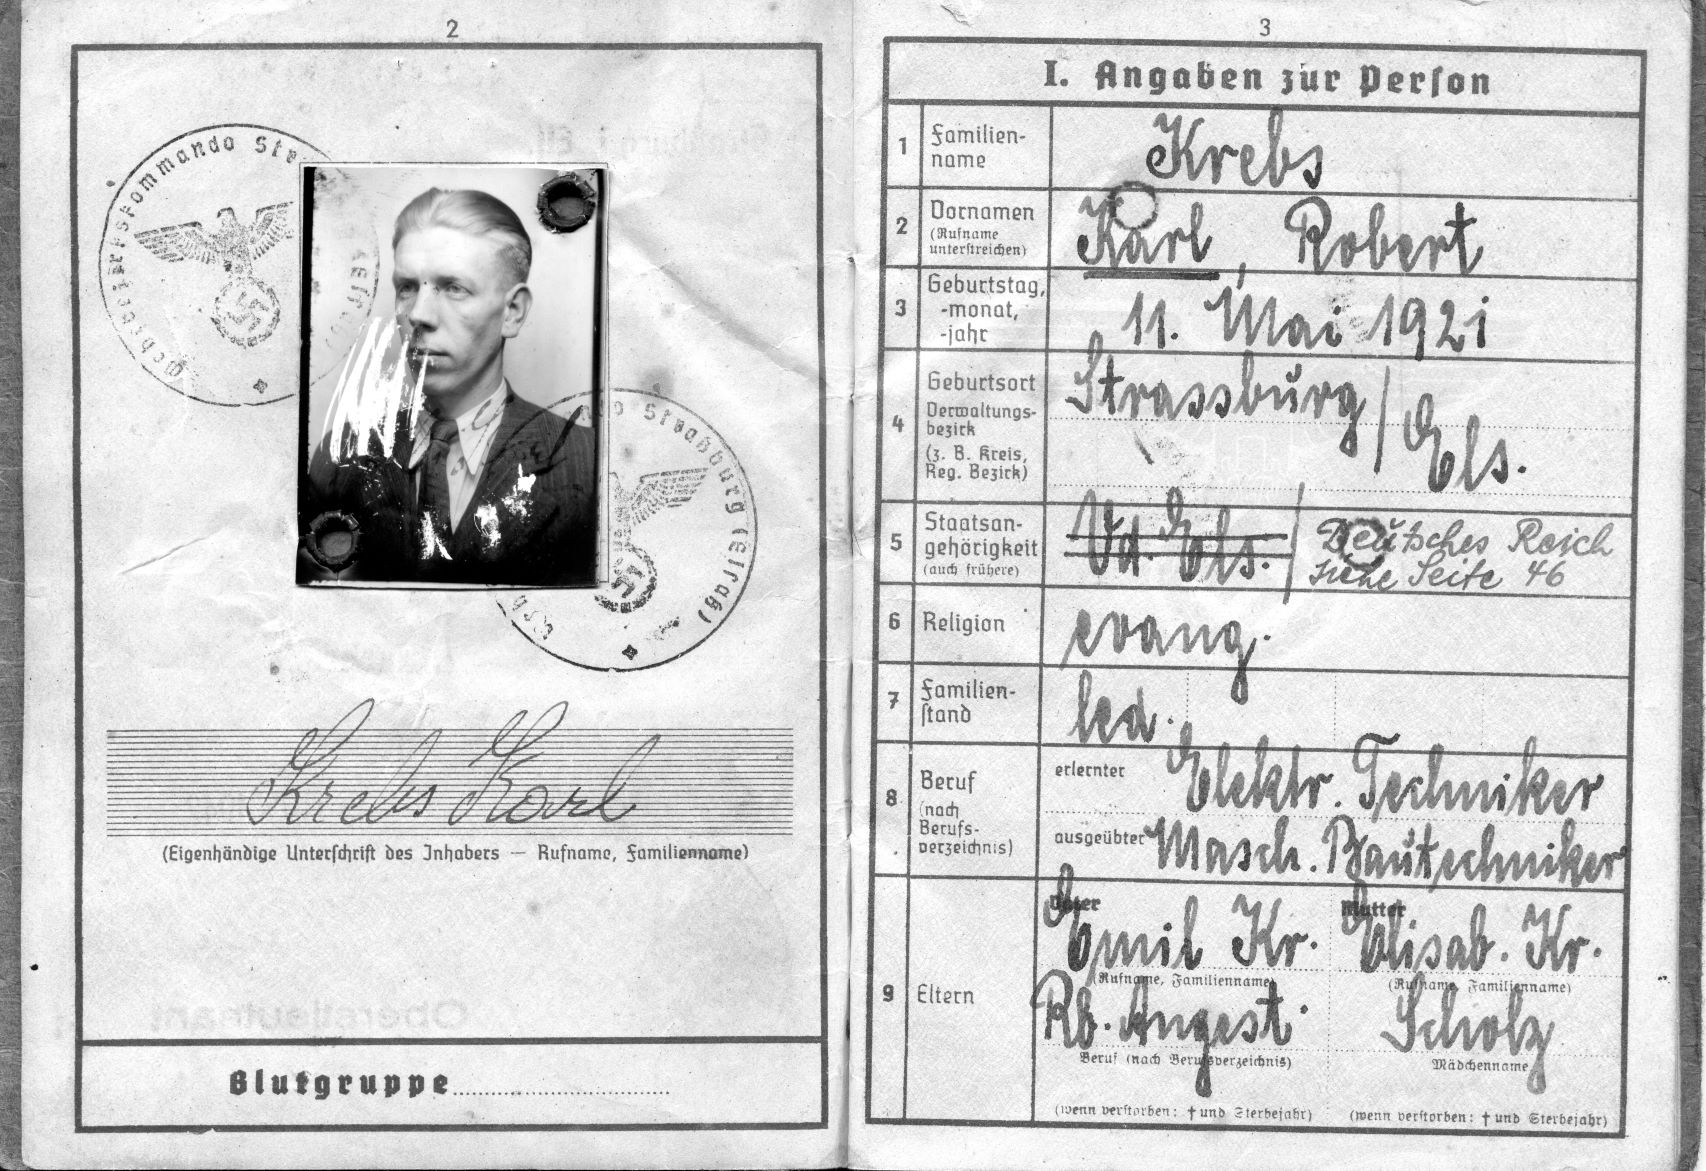 2
Wehrbezirkskommando Straßburg (Elsaß)
Krebs Karl
(Eigenhändige Unterschrift des Inhabers — Rufname, Familienname)
Blutgruppe
3
I. Angaben zur Person
1 Familien-
name
Krebs
2 Vornamen
(Rufname
unterstreichen)
Karl, Robert
3 Geburtstag,
-monat,
-jahr
11. Mai 1921
4 Geburtsort
Verwaltungs-
bezirk
(z. B. Kreis,
Reg. Bezirk)
Strassburg / Els.
5 Staatsan-
gehörigkeit
(auch frühere)
Vd. Els. / Deutsches Reich
siehe Seite 46
6 Religion
evang.
7 Familien-
stand
led.
8 Beruf
(nach
Berufs-
verzeichnis)
erlernter Elektr. Techniker
ausgeübter Masch. Bautechniker
9 Eltern
Vater Mutter
Emil Kr. Elisab. Kr.
(Rufname, Familienname) (Rufname, Familienname)
Rb. Angest. Scholz
Beruf (nach Berufsverzeichnis) Mädchenname
(wenn verstorben: † und Sterbejahr) (wenn verstorben: † und Sterbejahr)